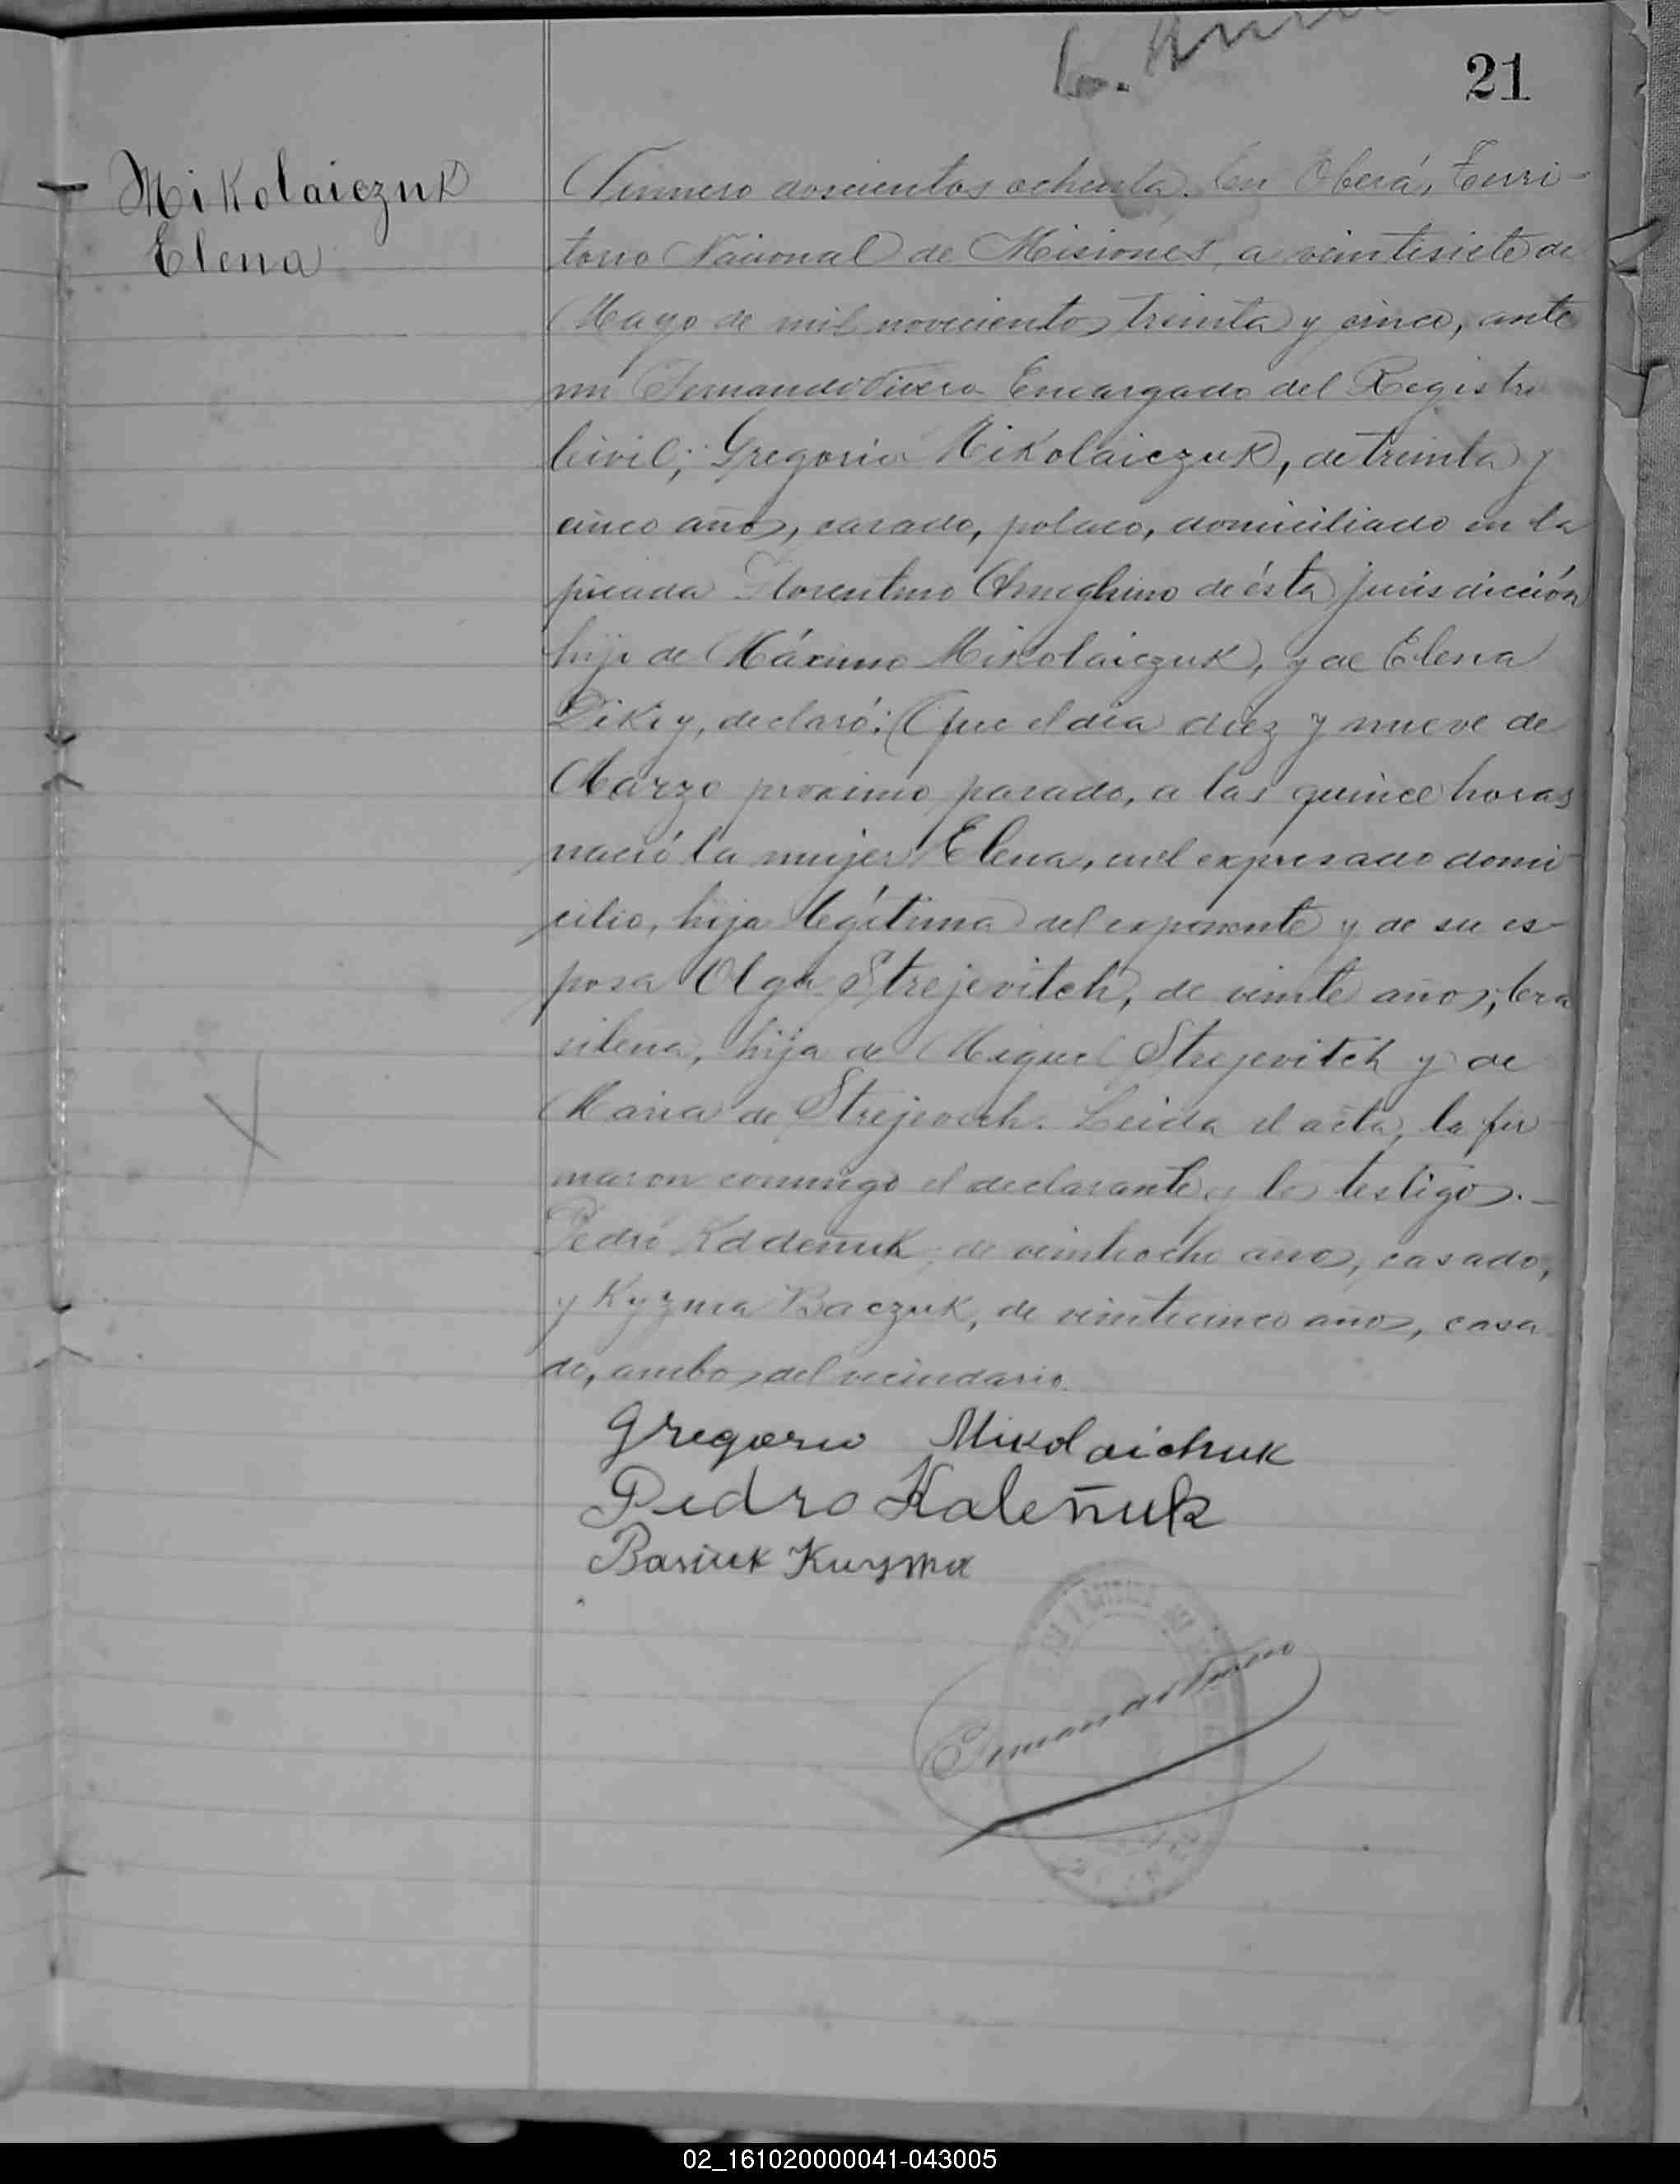 21
Mikolaiczuk
Elena
Número doscientos ochenta. En Oberá, Terri-
torio Nacional de Misiones, a veintisiete de
Mayo de mil novecientos treinta y cinco, ante
mi Fernando Encargado del Registro
Civil; Gregorio Mikolaiczuk, de treinta y
cinco años, casado, polaco, domiciliado en la
picada Florentino Ameghino de ésta jurisdicción
hijo de Máximo Mikolaiczuk, y de Elena
Dikiy, declaró: Que el día diez y nueve de
Marzo proximo pasado, a las quince horas
nació la mujer Elena, en el expresado domi-
cilio, hija legítima del exponente y de su es-
posa Olga Strejevitch, de veinte años, bra
silena, hija de Miguel Strejevitch y de
Maria de Strejevich. Leida el acta, la fir-
maron conmigo el declarante y los testigos.-
Pedro de veintiocho años, casado,
y Kyzma Baczuk, de veinticinco años, casa-
do, ambos del vecindario.
Gregorio Mikolaichuk
Pedro Kaleñuk
Basiuk Kuzma
02_161020000041-043005